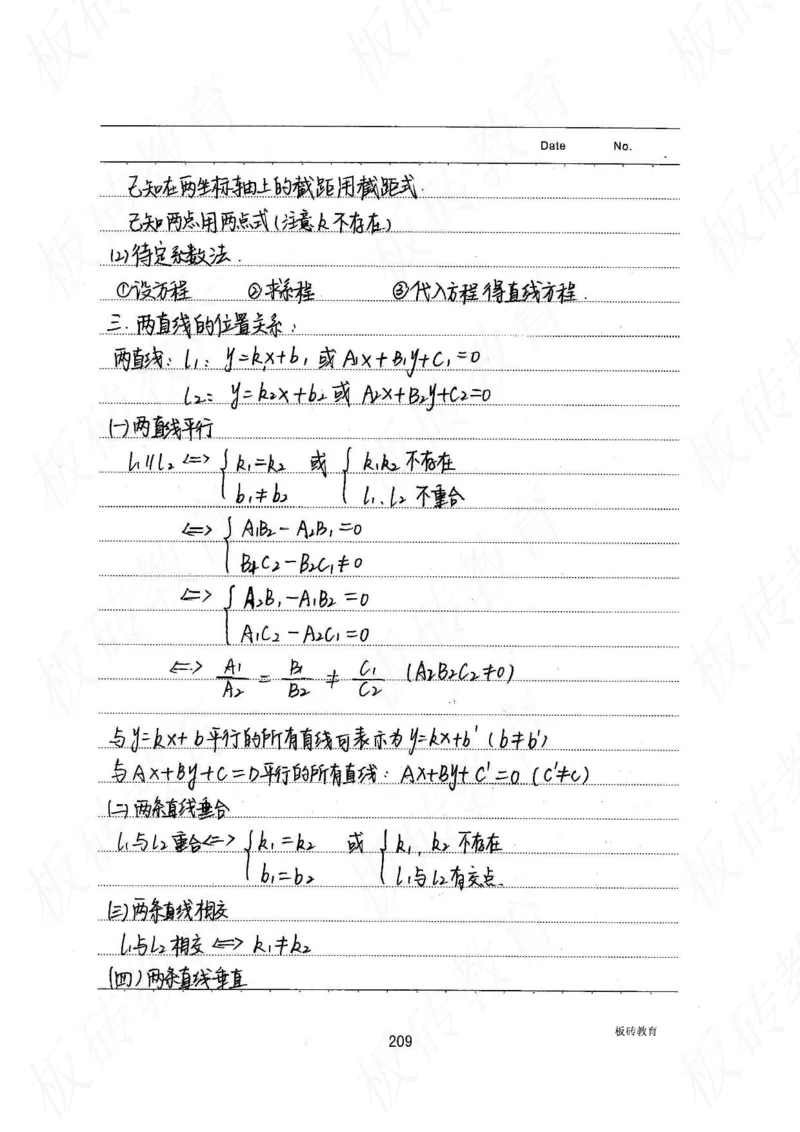 Date No.
已知在两坐标轴上的截距用截距式.
已知两点用两点式(注意k不存在)
(2)待定系数法.
①设方程 ②求系程 ③代入方程得直线方程.
三.两直线的位置关系:
两直线: l₁: y=k₁x+b₁ 或 A₁x+B₁y+C₁=0
l₂: y=k₂x+b₂ 或 A₂x+B₂y+C₂=0
(一)两直线平行
l₁∥l₂ <=> { k₁=k₂ 或 { k₁k₂ 不存在
b₁≠b₂ l₁、l₂ 不重合
<=> { A₁B₂-A₂B₁=0
B₁C₂-B₂C₁≠0
<=> { A₂B₁-A₁B₂=0
A₁C₂-A₂C₁=0
<=> A₁/A₂ = B₁/B₂ ≠ C₁/C₂ (A₂B₂C₂≠0)
与y=kx+b平行的所有直线可表示为y=kx+b' (b≠b')
与Ax+By+C=0平行的所有直线: Ax+By+C'=0 (C'≠C)
(二)两条直线重合
l₁与l₂重合<=> { k₁=k₂ 或 { k₁, k₂ 不存在
b₁=b₂ l₁与l₂有交点.
(三)两条直线相交
l₁与l₂相交 <=> k₁≠k₂
(四)两条直线垂直
板砖教育
209